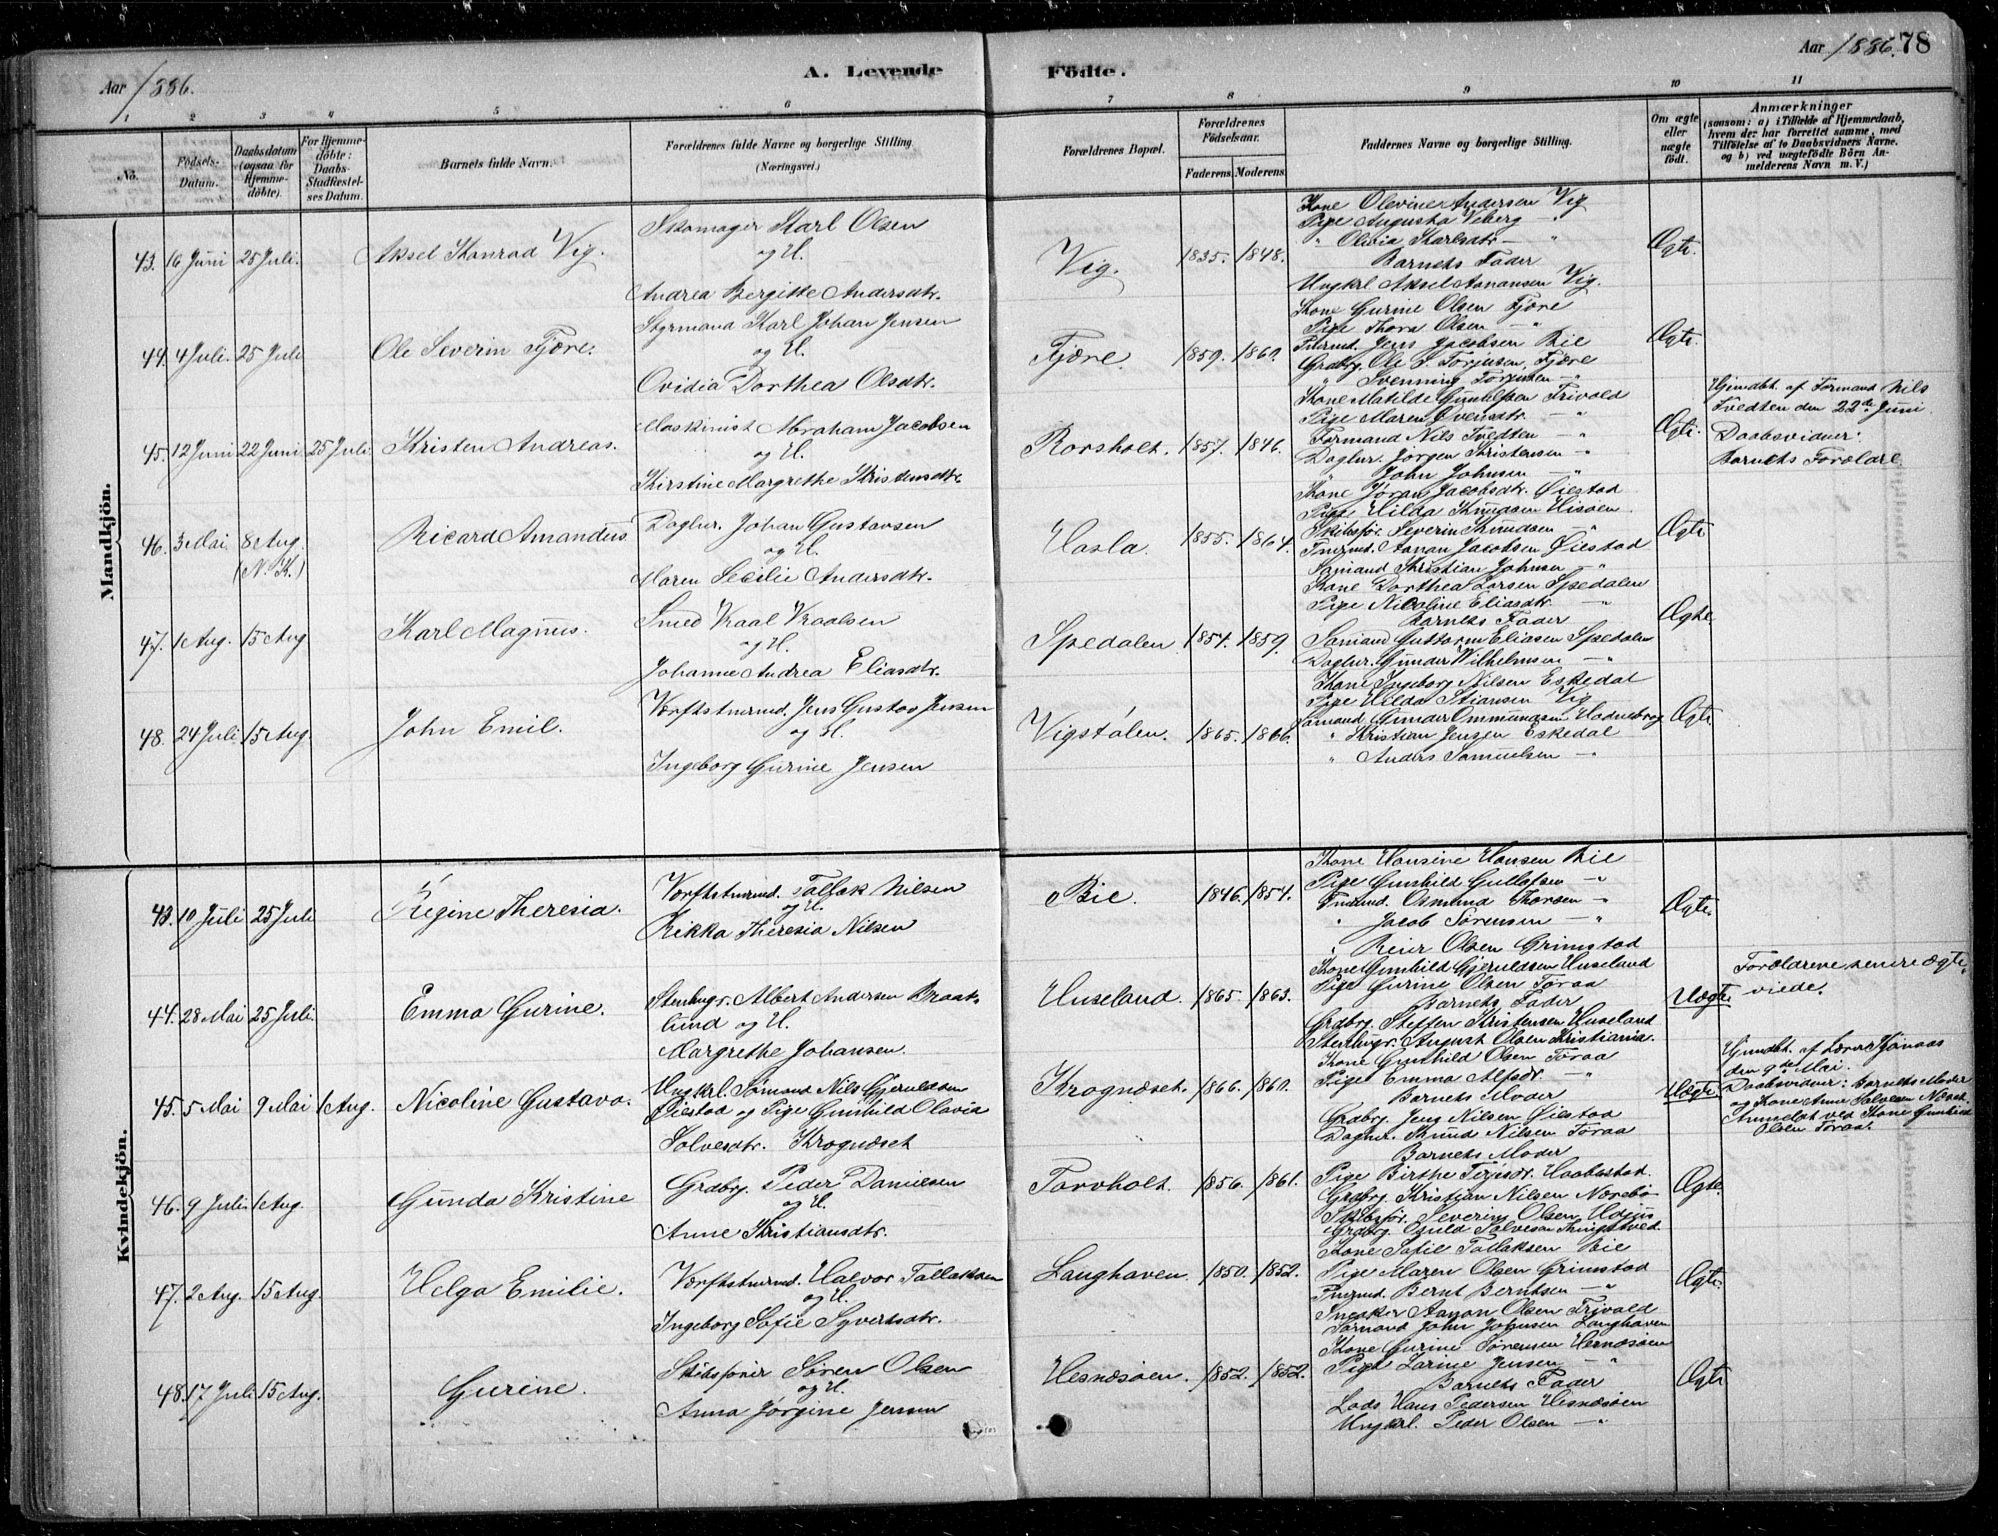 Aar 1886.
A. Levende
Födte.
Aar 1886. 78
1 2 3 4 5 6 7 8 9 10 11
No.
Födsels-
Datum.
Daabsdatum
(ogsaa for
Hjemme-
döbte).
For Hjemme-
döbte:
Daabs-
Stadfæstel-
ses Datum.
Barnets fulde Navn.
Forældrenes fulde Navne og borgerlige Stilling
(Næringsvei.)
Forældrenes Bopæl.
Forældrenes
Födselsaar.
Faderens Moderens
Faddernes Navne og borgerlige Stilling.
Om ægte
eller
uægte
födt.
Anmærkninger
(saasom: a) i Tilfælde af Hjemmedaab,
hvem der har forrettet samme, med
Tilföielse af to Daabsvidners Navne.
og b) ved uægtefödte Börn An-
melderens Navn m. V.)
Mandkjön.
43. 16 Juni 25 Juli. Aksel Konrad Vig.
Skomager Karl Olsen
og H.
Andrea Bergitte Andersdtr.
Vig. 1835. 1848.
Kone Olevine Andersen Vig
Pige Augusta Veberg "
" Olivia Karlsdtr — "
Barnets Fader
Ungkrl. Aksel Aanansen Vig.
Ægte.
44. 4 Juli. 25 Juli Ole Severin Fjære.
Styrmand Karl Johan Jensen
og H.
Ovidia Dorthea Olsdtr.
Fjære. 1859. 1860.
Kone Gurine Olsen Fjære
Pige Thora Olsen — "
Tmrmd. Jens Jacobsen Bie
Grdbrg. Ole S. Torjusen, Fjære
" Svenning Torjusen — "
Ægte.
45. 12 Juni 22 Juni 25 Juli. Kristen Andreas.
Maskinist Abraham Jacobsen
og H.
Kirstine Margrethe Kristensdtr.
Rorsholt. 1857. 1846.
Kone Matilde Gunulfsen Frivold
Pige Maren Evensdtr. — "
Formand Nils Tvedten — "
Daglnr. Jørgen Kristensen — "
" John Johnsen — "
Ægte.
Hjemdbt. af Formand Nils
Tvedten den 22de Juni.
Daabsvidner:
Barnets Forældre.
46. 3 Mai 8 Aug.
(N. K.)
Ricard Amandus.
Daglnr. Johan Gustavsen
og H.
Maren Secilie Andersdtr.
Hasla. 1855. 1864.
Kone Jøran Jacobsdtr. Øiestad
Pige Hilda Knudsen Hisøen.
Skibsfør. Severin Knudsen — "
Tmrmd. Aanan Jacobsen Øiestad
Sømand Kristian Johnsen — "
Ægte
47. 1 Aug. 15 Aug Karl Magnus.
Smed Vraal Vraalsen
og H.
Johanne Andrea Eliasdtr.
Spedalen. 1854. 1859.
Kone Dorthea Larsen Spedalen
Pige Nicoline Eliasdtr. — "
Barnets Fader
Sømand Guttorm Eliasen Spedalen
Daglnr. Gunder Wilhelmsen — "
Ægte.
48. 24 Juli. 15 Aug. John Emil.
Værftstmrmd. Jens Gustav Jensen
og H.
Ingeborg Gurine Jensen
Vigstølen. 1865. 1866.
Kone Ingeborg Nilsen Eskedal
Pige Hilda Stiansen Vig
Sømand Gunder Ommundsen Hodneborg
" Kristian Jensen Eskedal
" Anders Samuelsen — "
Ægte.
Kvindekjön.
43. 10 Juli 25 Juli Regine Theresia.
Værftstmrmd. Tallak Nilsen
og H.
Rikka Theresia Nilsen
Bie. 1846. 1854.
Kone Hansine Hansen Bie
Pige Gunhild Gullofsen — "
Tmrmd. Osmund Thorsen — "
" Jacob Sørensen — "
" Reier Olsen Grimstad
Ægte.
44. 28 Mai 25 Juli. Emma Gurine.
Stenhugr. Albert Andersen Braat-
lund og H.
Margrethe Johansen.
Huseland. 1865. 1863.
Kone Gunhild Gjeruldsen Huseland
Pige Gurine Olsen Toraa
Barnets Fader
Grdbrg. Steffen Kristensen Huseland
Stenhugr. August Olsen Kristiania.
Uægte.
Forældrene senere ægte-
viede.
45. 5 Mai 9 Mai 1 Aug. Nicoline Gustava.
Ungkrl. Sømand Nils Gjeruldsen
Øiestad og Pige Gunhild Olavia
Solvesdtr. Krognæset
Krognæset. 1866. 1860.
Kone Gunhild Olsen Toraa
Pige Emma Alfsdr. — "
Barnets Moder
Grdbrg. Jens Nilsen Øiestad
Daglnr. Knud Nilsen Toraa
Uægte
Hjemdbt. af Lærer Kjønaas
den 9de Mai.
Daabsvidner: Barnets Moder
og Kone Anne Solvesen Næset.
Anmeldt ved Kone Gunhild
Olsen Toraa.
46. 9 Juli 1 Aug. Gunda Kristine
Grdbrg. Peder Danielsen
og H.
Anne Kristiansdtr.
Torvholt. 1856. 1861.
Barnets Moder
Pige Birthe Terjesdr. Haabestad.
Grdbrg. Kristian Nilsen Nærebø
Skibsfør. Severin Olsen
Ægte.
47. 2 Aug. 15 Aug Helga Emilie.
Værftstmrmd. Halvor Tallaksen
og H.
Ingeborg Sofie Syvertsdtr.
Langhaven. 1850. 1852.
Kone Sofie Tallaksen Bie
Pige Maren Olsen Grimstad
Tmrmd. Bernt Berntsen — "
Snedker Aanon Olsen Frivold
Formand John Johnsen Langhaven
Ægte.
48. 17 Juli 15 Aug. Gurine.
Skibsfører Søren Olsen
og H.
Anna Jørgine Jensen
Hesnæsøen. 1852. 1852.
Kone Gurine Sørensen Hesnæsøen
Pige Larine Jensen — "
Barnets Fader
Lods Hans Pedersen Hesnæsøen
Ungkrl. Peder Olsen — "
Ægte